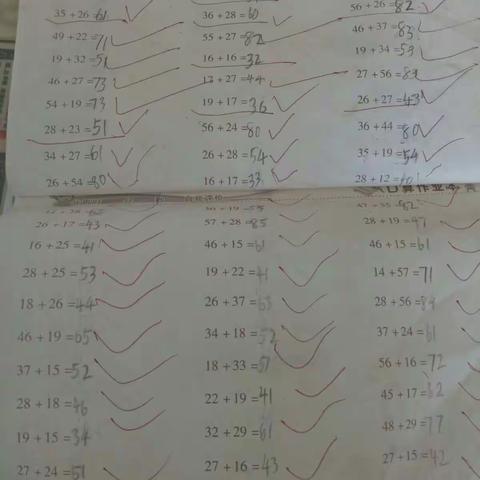 35 + 26 =61 36 + 28 =60 56 + 26 =82
49 + 22 =71 55 + 27 =82 46 + 37 =83
19 + 32 =51 16 + 16 =32 19 + 34 =53
46 + 27 =73 17 + 27 =44 27 + 56 =83
54 + 19 =73 19 + 17 =36 26 + 27 =43
28 + 23 =51 56 + 24 =80 36 + 44 =80
34 + 27 =61 26 + 28 =54 35 + 19 =54
26 + 54 =80 16 + 17 =33 28 + 12 =40
口算作业本
26 + 17 =43 57 + 28 =85 28 + 19 =47
16 + 25 =41 46 + 15 =61 46 + 15 =61
28 + 25 =53 19 + 22 =41 14 + 57 =71
18 + 26 =44 26 + 37 =63 28 + 56 =84
46 + 19 =65 34 + 18 =52 37 + 24 =61
37 + 15 =52 18 + 33 =51 56 + 16 =72
28 + 18 =46 22 + 19 =41 45 + 17 =62
19 + 15 =34 32 + 29 =61 48 + 29 =77
27 + 24 =51 27 + 16 =43 27 + 15 =42